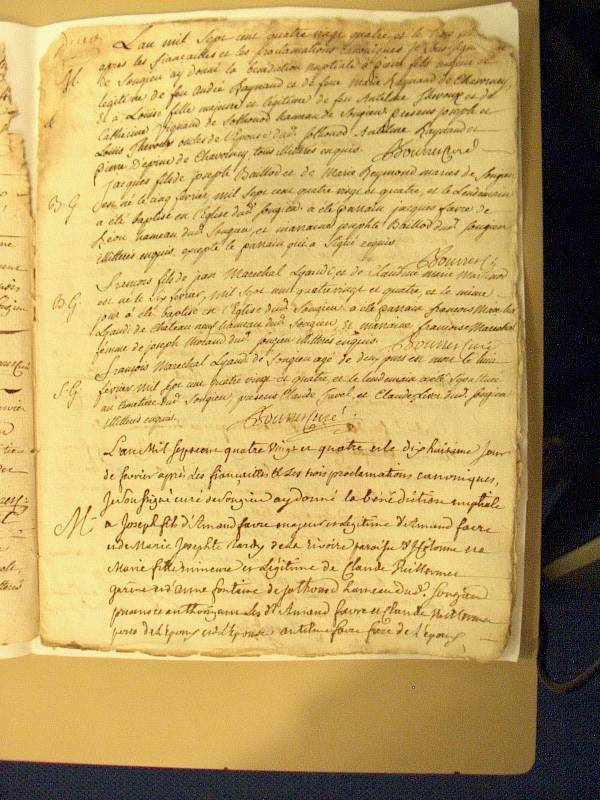 L'an mil sept cent quatre vingt quatre et le trois
après les fiançailles et les proclamations canoniques je soussigné
de Songieu ay donné la bénédiction nuptiale à pierre fils majeur et
M. légitime de feu André Raynaud et de feue marie Raynaud de Chavornay,
& à Louise fille majeure et légitime de feu Antelme Thevoux et de
Catherine de Sothonod hameau de Songieu, presens joseph et
Louis Thevoux oncles de l'épouse dud. Sothonod Antelme Raynaud et
Pierre D'epine de Chavornay, tous illitérés enquis. curé
Jacques fils de joseph Baillod et de Marie Reymond mariés de Songieu
B. G. est né le cinq février mil sept cent quatre vingt et quatre, et le lendemain
a été baptisé en l'Eglise dud. Songieu. a été parrain jacques favre de
hameau dud. Songieu et marraine josephte Baillod dud. Songieu
illitérés enquis, excepté le parrain qui a signé enquis.
François fils de jean Marechal Lyaudi et de Claudine marie
B. G. est né le six fevrier, mil sept cent quatre vingt et quatre, et le même
jour a été baptisé en l'Eglise dud. Songieu. a été parrain françois Marechal
Lyaudi de Chateau neuf hameau dud. Songieu, et marraine françoise Marechal
femme de joseph Moraud dud. Songieu illitérés enquis. curé
François Marechal Lyaudi de Songieu agé de deux jours est mort le huit
S. G. février mil sept cent quatre vingt et quatre, et le lendemain a été sepulturé
au cimetière dud. Songieu, présens Claude juvet, et Claude dud. Songieu
illitérés enquis. curé.
L'an Mil Sept cent quatre vingt et quatre et le dix huitième jour
de fevrier après Les fiançailles et les trois proclamations canoniques,
Je soussigné curé de Songieu ay donné la bénédiction nuptiale
M. a Joseph fils d'Amand favre majeur et légitime d'Amand favre
et de Marie Josephte de la rivoire paroisse d' et a
Marie fille mineure et légitime de Claude Vuillermet
et d'anne fontaine de Sothonod hameau dud. Songieu
Les d. Amand favre et Claude Vuillermet
peres de L'Epoux et de L'Epouse antelme favre frere de L'Epoux